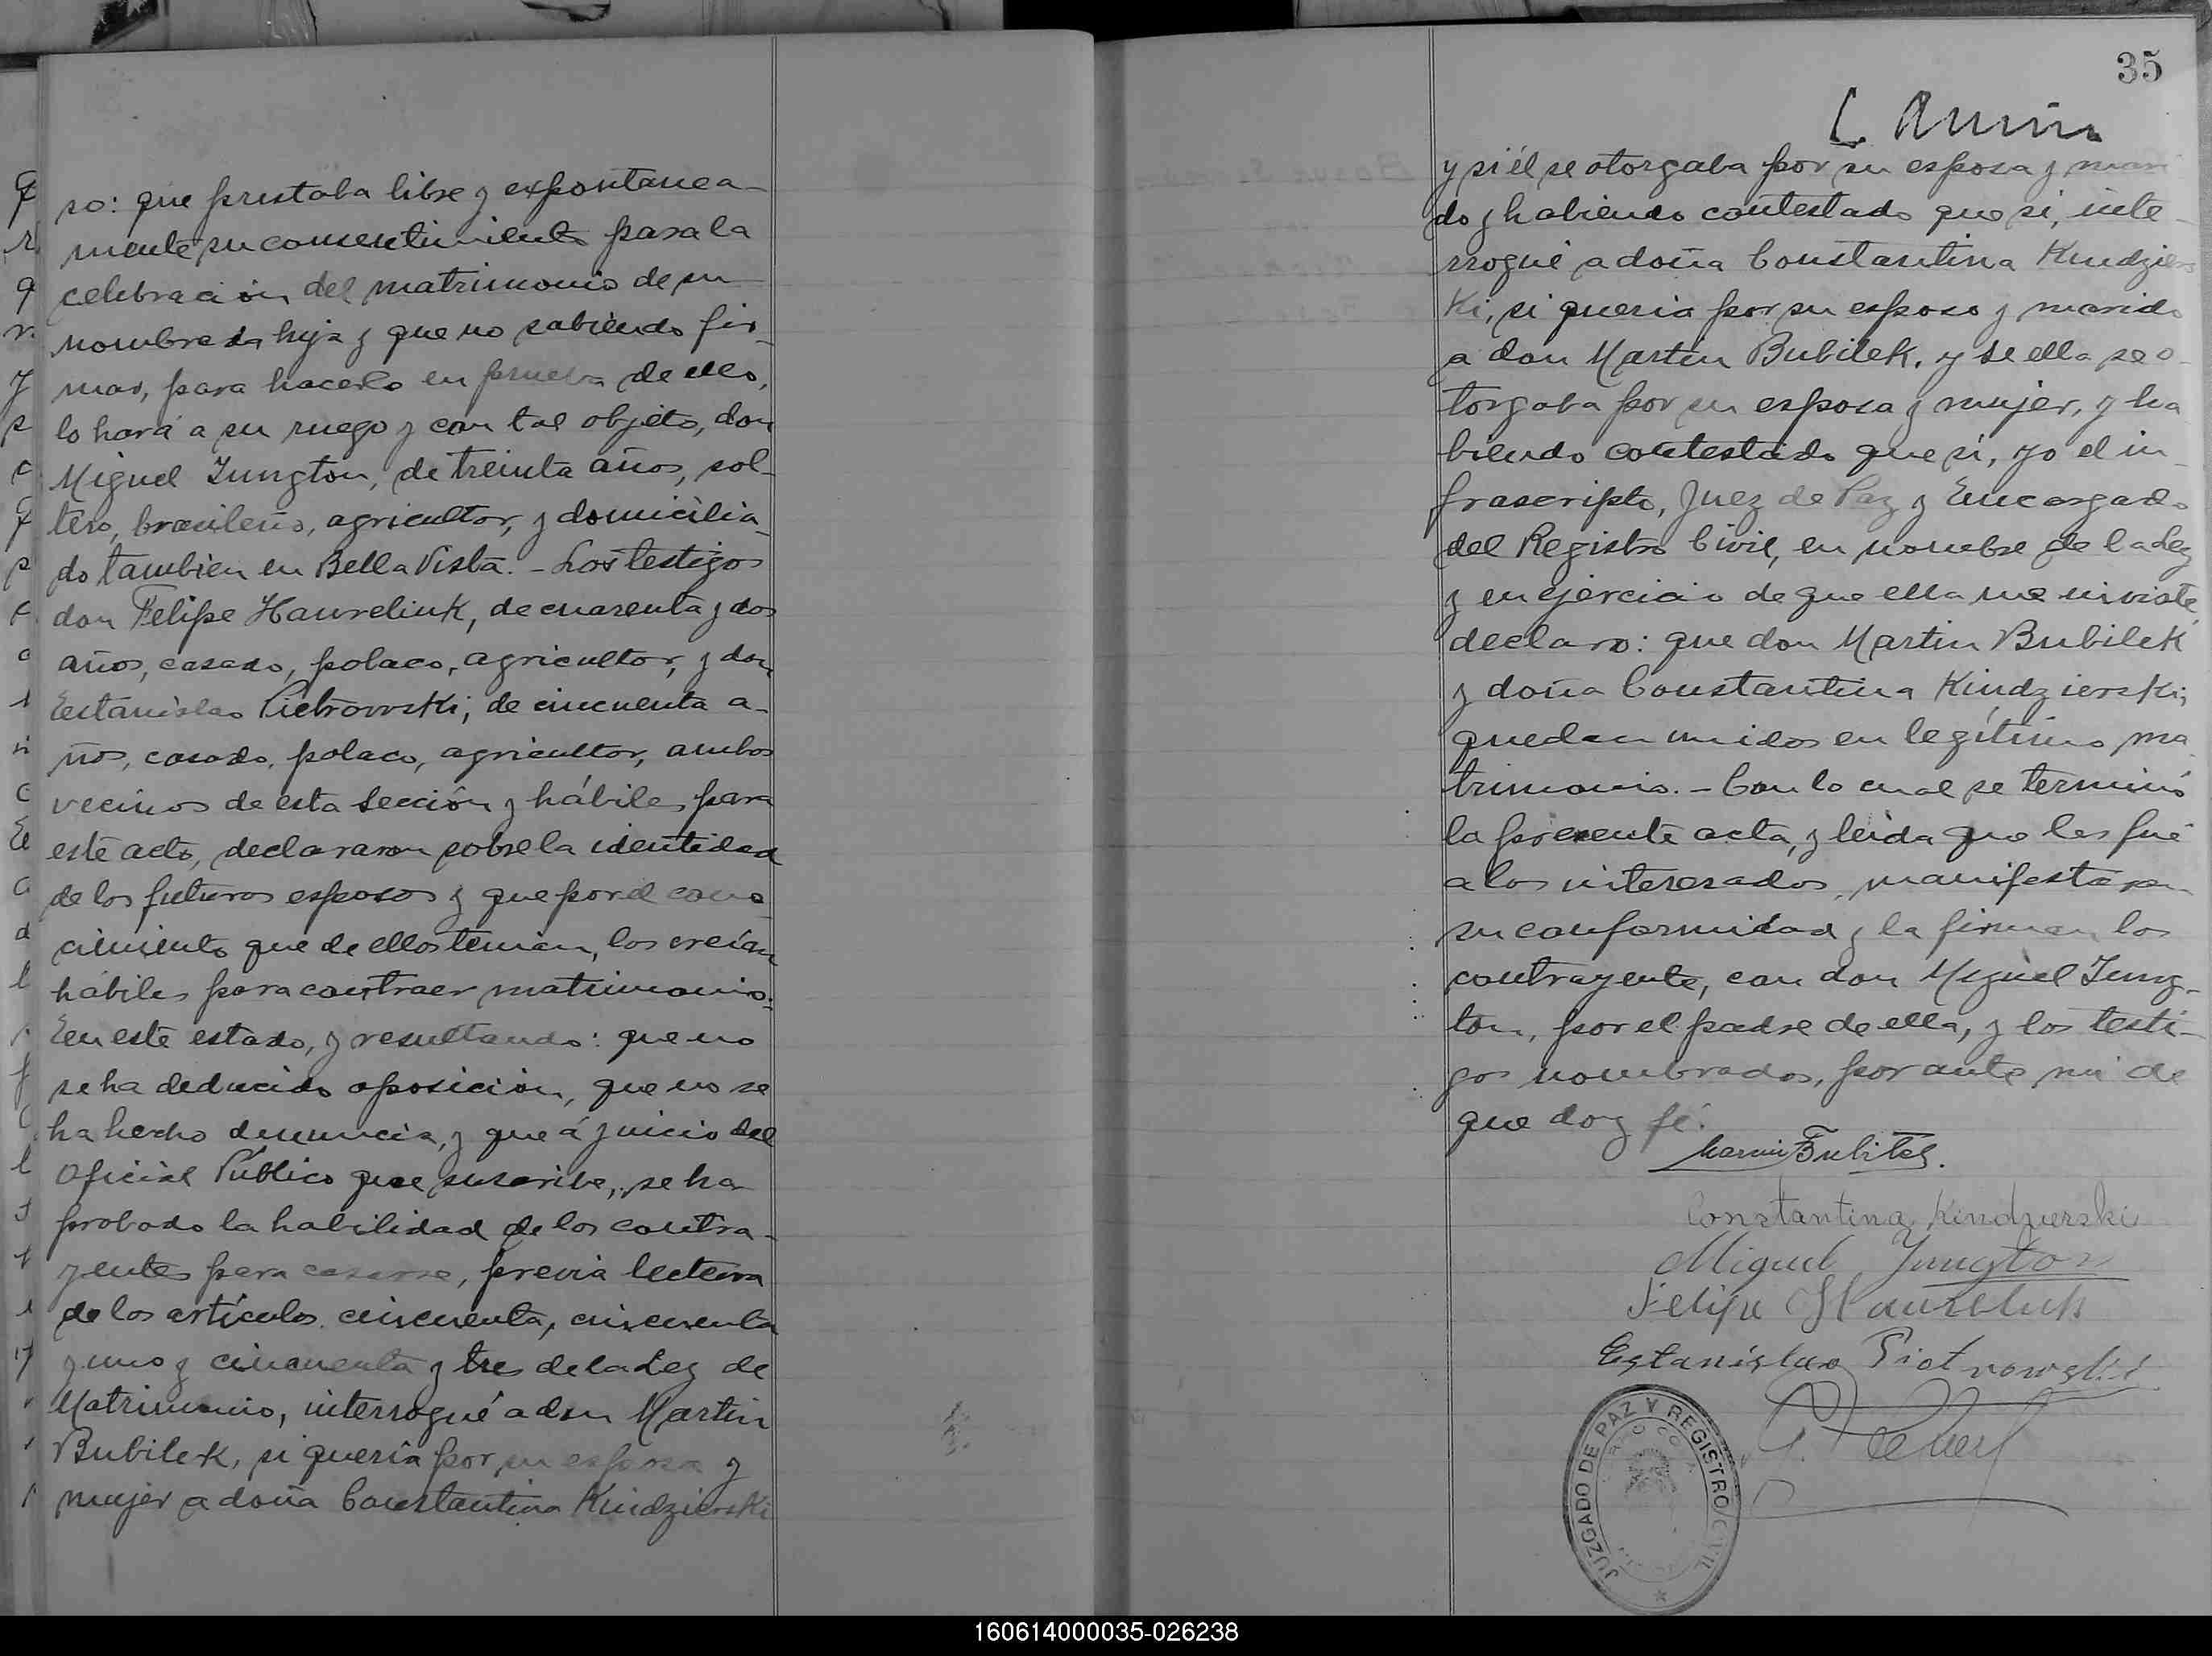 so: que prestaba libre y expontanea-
mente su consentimiento para la
celebración del matrimonio de su
nombrada hija y que no sabiendo fir-
mar, para hacerlo en prueba de ello,
lo hará a su ruego y con tal objeto, don
Miguel Jungton, de treinta años, sol-
tero, brasileño, agricultor, y domicilia-
do tambien en Bella Vista. - Los testigos
don Felipe Haureliuk, de cuarenta y dos
años, casado, polaco, agricultor, y don
Estanislao Pietrowski, de cincuenta a-
ños, casado, polaco, agricultor, ambos
vecinos de esta Sección y hábiles para
este acto, declararon sobre la identidad
de los futuros esposos y que por el cono-
cimiento que de ellos tenian, los creían
hábiles para contraer matrimonio.-
En este estado, y resultando: que no
se ha deducido oposición, que no se
ha hecho denuncia, y que á juicio del
Oficial Público que suscribe, se ha
probado la habilidad de los contra-
yentes para casarse, previa lectura
de los artículos cincuenta, cincuenta
y uno y cincuenta y tres de la Ley de
Matrimonio, interrogué a don Martin
Bubilek, si quería por su esposa y
mujer a doña Constantina Kindzierski
35
y si él se otorgaba por su esposo y mari
do y habiendo contestado que si, inte-
rrogué a doña Constantina Kindziers
ki, si queria por su esposo y marido
a don Martín Bubilek, y si ella se o-
torgaba por su esposa y mujer, y ha
biendo contestado que sí, yo el in-
frascripto, Juez de Paz y Encargado
del Registro Civil, en nombre de la Ley
y en ejercicio de que ella me inviste,
declaro: que don Martin Bubilek
y doña Constantina Kindzierski,
quedan unidos en legítimo ma
trimonio. - Con lo cual se terminó
la presente acta, y leida que les fué
a los interesados, manifestaron
su conformidad y la firman los
contrayente, con don Miguel Jung-
ton, por el padre de ella, y los testi-
gos nombrados, por ante mi de
que doy fé.
Constantina Kindzierski
Miguel Jungton
Felipe Haureluk
Estanislao Piotrowski
JUZGADO DE PAZ Y REGISTRO CIVIL
160614000035-026238